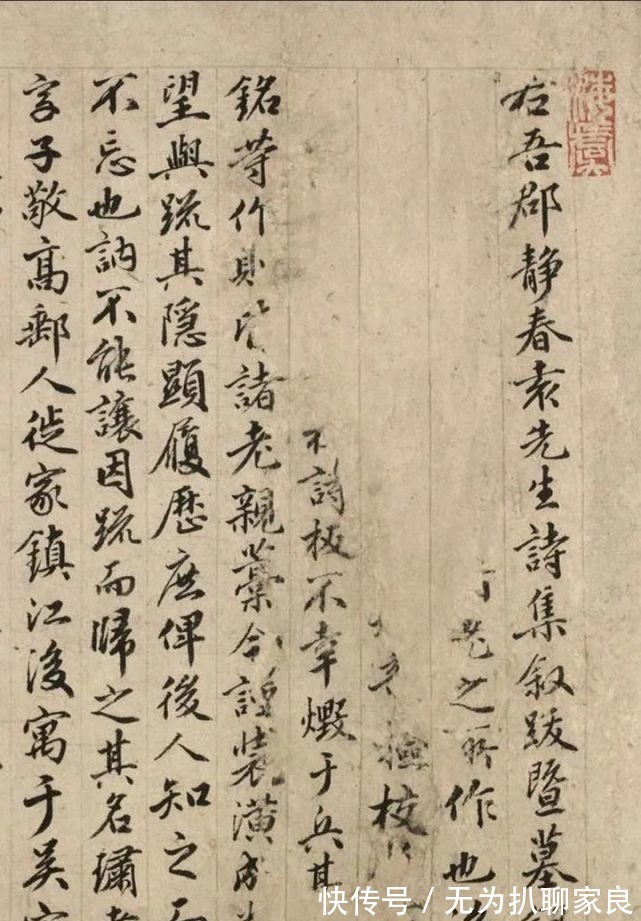 右吾郡静春袁先生詩集叙跋暨墓
之所作也
校
詩板不幸燬于兵其
銘等作則皆諸老親藁今謹装潢成
望與疏其隠顯履歷庶俾後人知之
不忘也訥不能讓因疏而歸之其名璛
字子敬高郵人徙家鎮江後寓于吴
快传号 / 无为扒聊家良